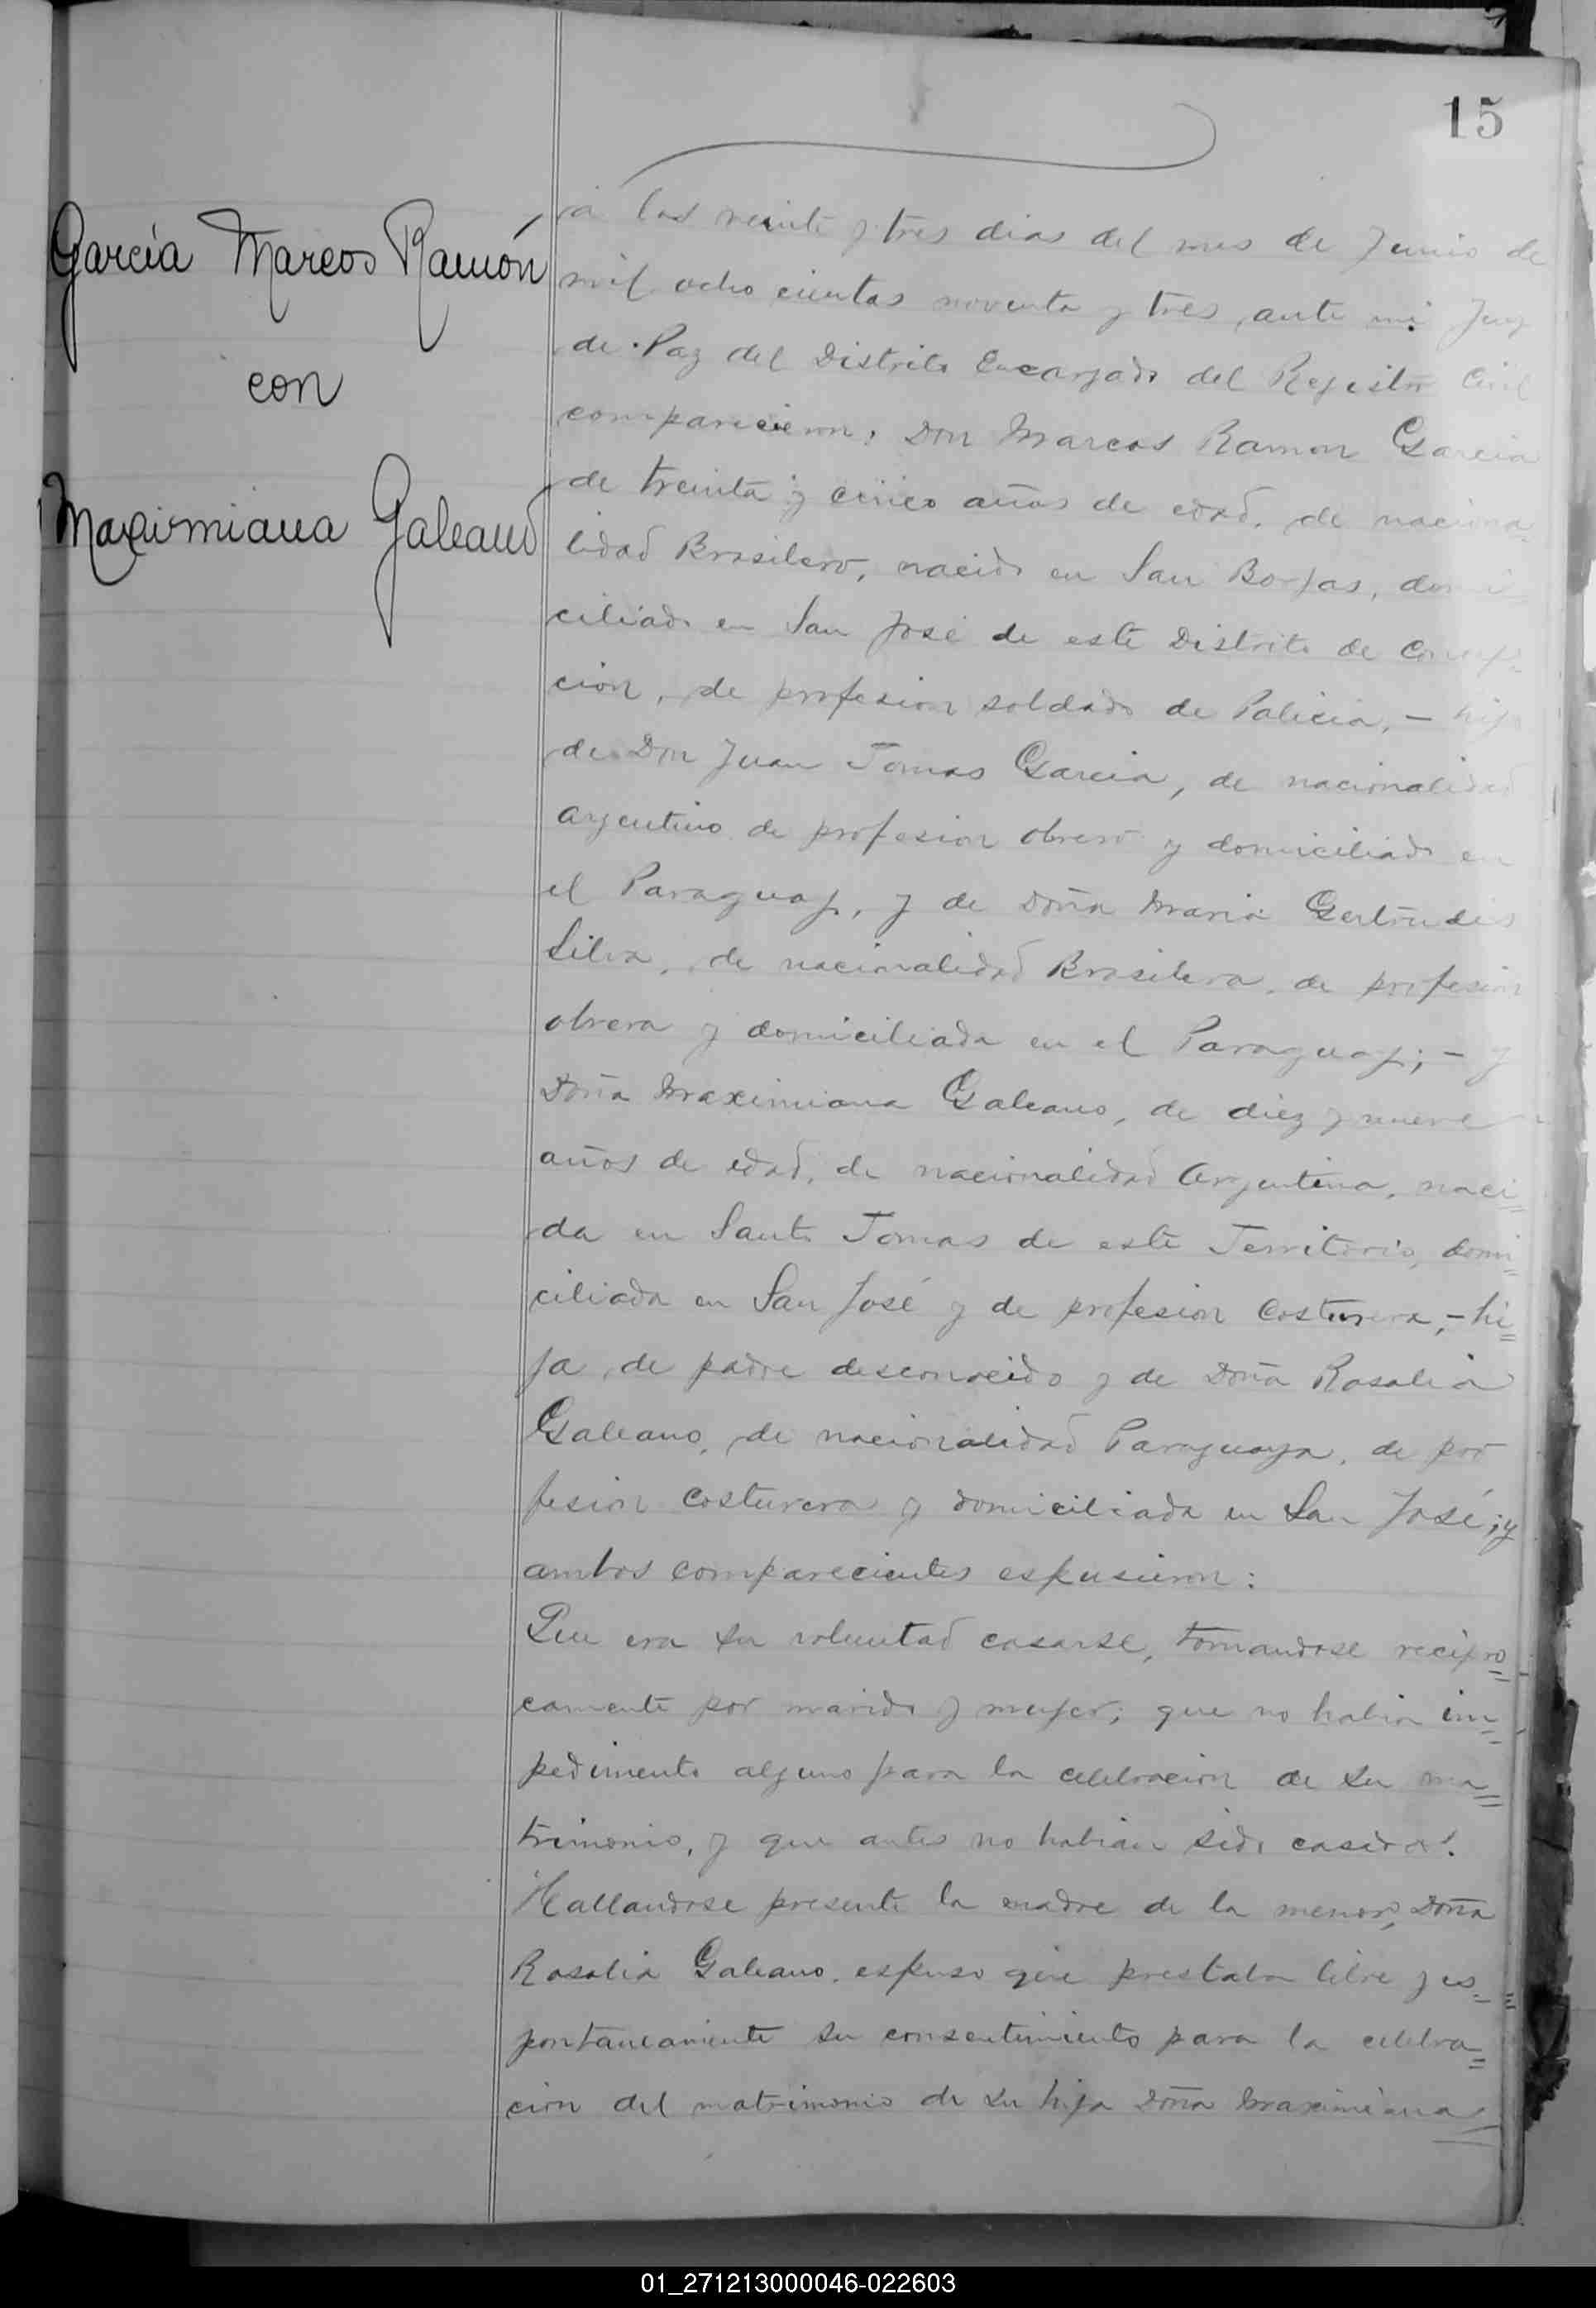 15
García Marcos Ramón
con
Maximiana Galeano
a los veinte y tres dias del mes de Junio de
mil ocho cientos noventa y tres, ante mi Juez
de Paz del Distrito Encargado del Registro Civil
comparecieron: Don Marcos Ramon Garcia
de treinta y cinco años de edad, de naciona=
lidad Brasilero, nacido en San Borjas, domi=
ciliado en San José de este Distrito de Concep=
cion, de profesion soldado de Policia, - hijo
de Don Juan Tomas Garcia, de nacionalidad
argentino de profesion obrero y domiciliado en
el Paraguay, y de Doña Maria Gertrudis
Silva, de nacionalidad Brasilera, de profesion
obrera y domiciliada en el Paraguay; - y
Doña Maximiana Galeano, de diez y nueve
años de edad, de nacionalidad Argentina, naci=
da en Santo Tomas de este Territorio, domi=
ciliada en San José y de profesion Costurera, - hi=
ja de padre desconocido y de Doña Rosalia
Galeano, de nacionalidad Paraguaya, de pro
fesion costurera y domiciliada en San José; y
ambos comparecientes espusieron:
Que era su voluntad casarse, tomandose recipro=
camente por marido y mujer; que no habia im=
pedimento alguno para la celebracion de su ma=
trimonio, y que antes no habian sido casados.
Hallandose presente la madre de la menor, Doña
Rosalia Galeano, espuso que prestaba libre y es=
pontaneamente su consentimiento para la celebra=
cion del matrimonio de su hija Doña Maximiana
01_271213000046-022603